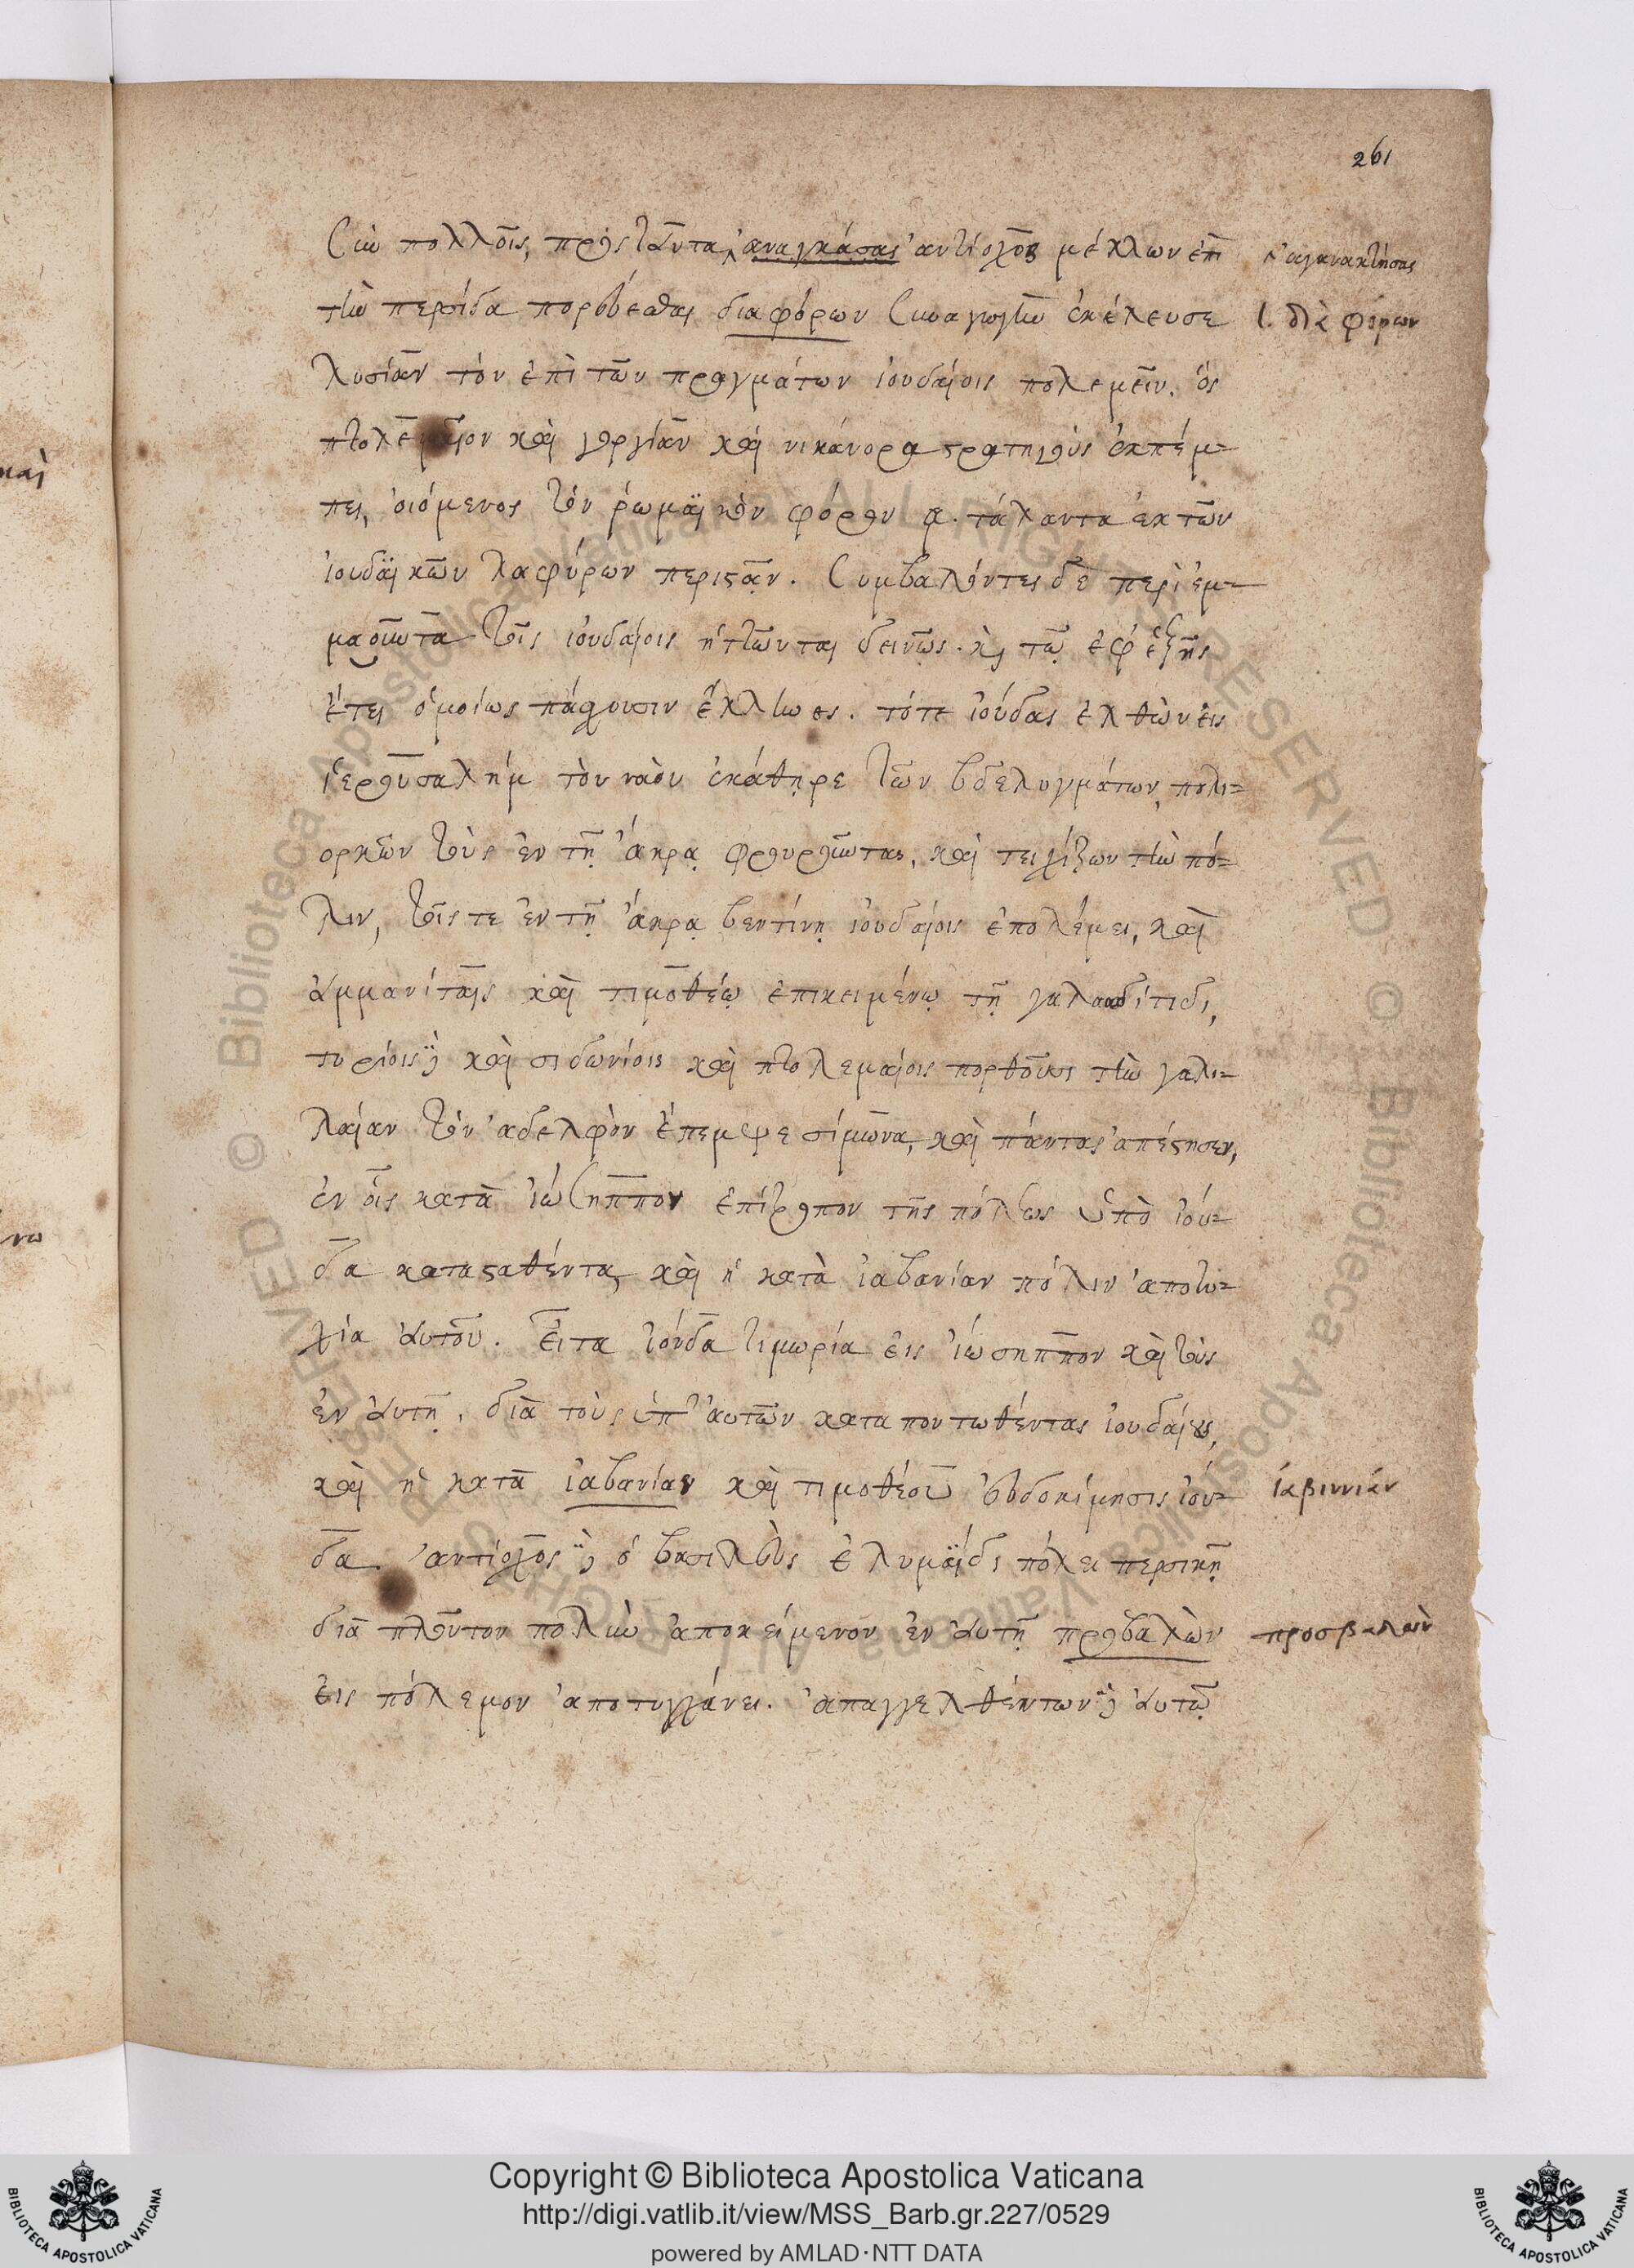 261
σὺν πολλοῖς, πρὸς ταῦτα ἀναγκάσας ἀντίοχος μέλλων ἐπὶ
ἀγανακτήσας
τὴν περσίδα πορεύεσθαι διαφόρων συναγωγὴν ἐκέλευσε
l. διὰ φόρων
λυσίαν τὸν ἐπὶ τῶν πραγμάτων ἰουδαίοις πολεμεῖν. ὃς
πτολεμαῖον καὶ γοργίαν καὶ νικάνορα στρατηγοὺς ἐκπέμ-
πει, οἰόμενος τὸν ῥωμαϊκὸν φόρον φ. τάλαντα ἐκ τῶν
ἰουδαϊκῶν λαφύρων περιστᾶν. συμβαλόντες δὲ περὶ ἐμ-
μαοῦντα τοῖς ἰουδαίοις ἡττῶνται δεινῶς. καὶ τῷ ἐφεξῆς
ἔτει ὁμοίως πάσχουσιν ἕλληνες. τότε ἰούδας ἐλθὼν εἰς
ἱερουσαλὴμ τὸν ναὸν ἐκάθηρε τῶν βδελυγμάτων, πολι-
ορκῶν τοὺς ἐν τῇ ἄκρᾳ φρουροῦντας, καὶ τειχίζων τὴν πό-
λιν, τοῖς τε ἐν τῇ ἄκρᾳ βεντίνῃ ἰουδαίοις ἐπολέμει, καὶ
ἀμμανίταις καὶ τιμοθέῳ ἐπικειμένῳ τῇ γαλααδίτιδι,
τυρίοις δὲ καὶ σιδωνίοις καὶ πτολεμαίοις πορθοῦσι τὴν γαλι-
λαίαν τὸν ἀδελφὸν ἔπεμψε σίμωνα, καὶ πάντας ἀπέστησεν,
ἐν οἷς κατὰ ἰώσηππον ἐπίτροπον τῆς πόλεως ὑπὸ ἰού-
δα κατασταθέντα, καὶ ἡ κατὰ ἰαβανίαν πόλιν ἀποτυ-
χία αὐτοῦ. εἶτα ἰούδα τιμωρία εἰς ἰώσηππον καὶ τοὺς
ἐν αὐτῇ, διὰ τοὺς ὑπ' αὐτῶν καταποντωθέντας ἰουδαίους,
καὶ ἡ κατὰ ἰαβανίαν καὶ τιμοθέου εὐδοκίμησις ἰού-
ἰαβιννιάν
δα. ἀντίοχος δὲ ὁ βασιλεὺς ἐλυμαΐδι πόλει περσικῇ
διὰ πλοῦτον πολὺν ἀποκείμενον ἐν αὐτῇ προβαλὼν
προσβαλὼν
εἰς πόλεμον ἀποτυγχάνει. ἀπαγγελθέντων δὲ αὐτῷ
Copyright © Biblioteca Apostolica Vaticana
http://digi.vatlib.it/view/MSS_Barb.gr.227/0529
powered by AMLAD·NTT DATA
BIBLIOTECA APOSTOLICA VATICANA
BIBLIOTECA APOSTOLICA VATICANA